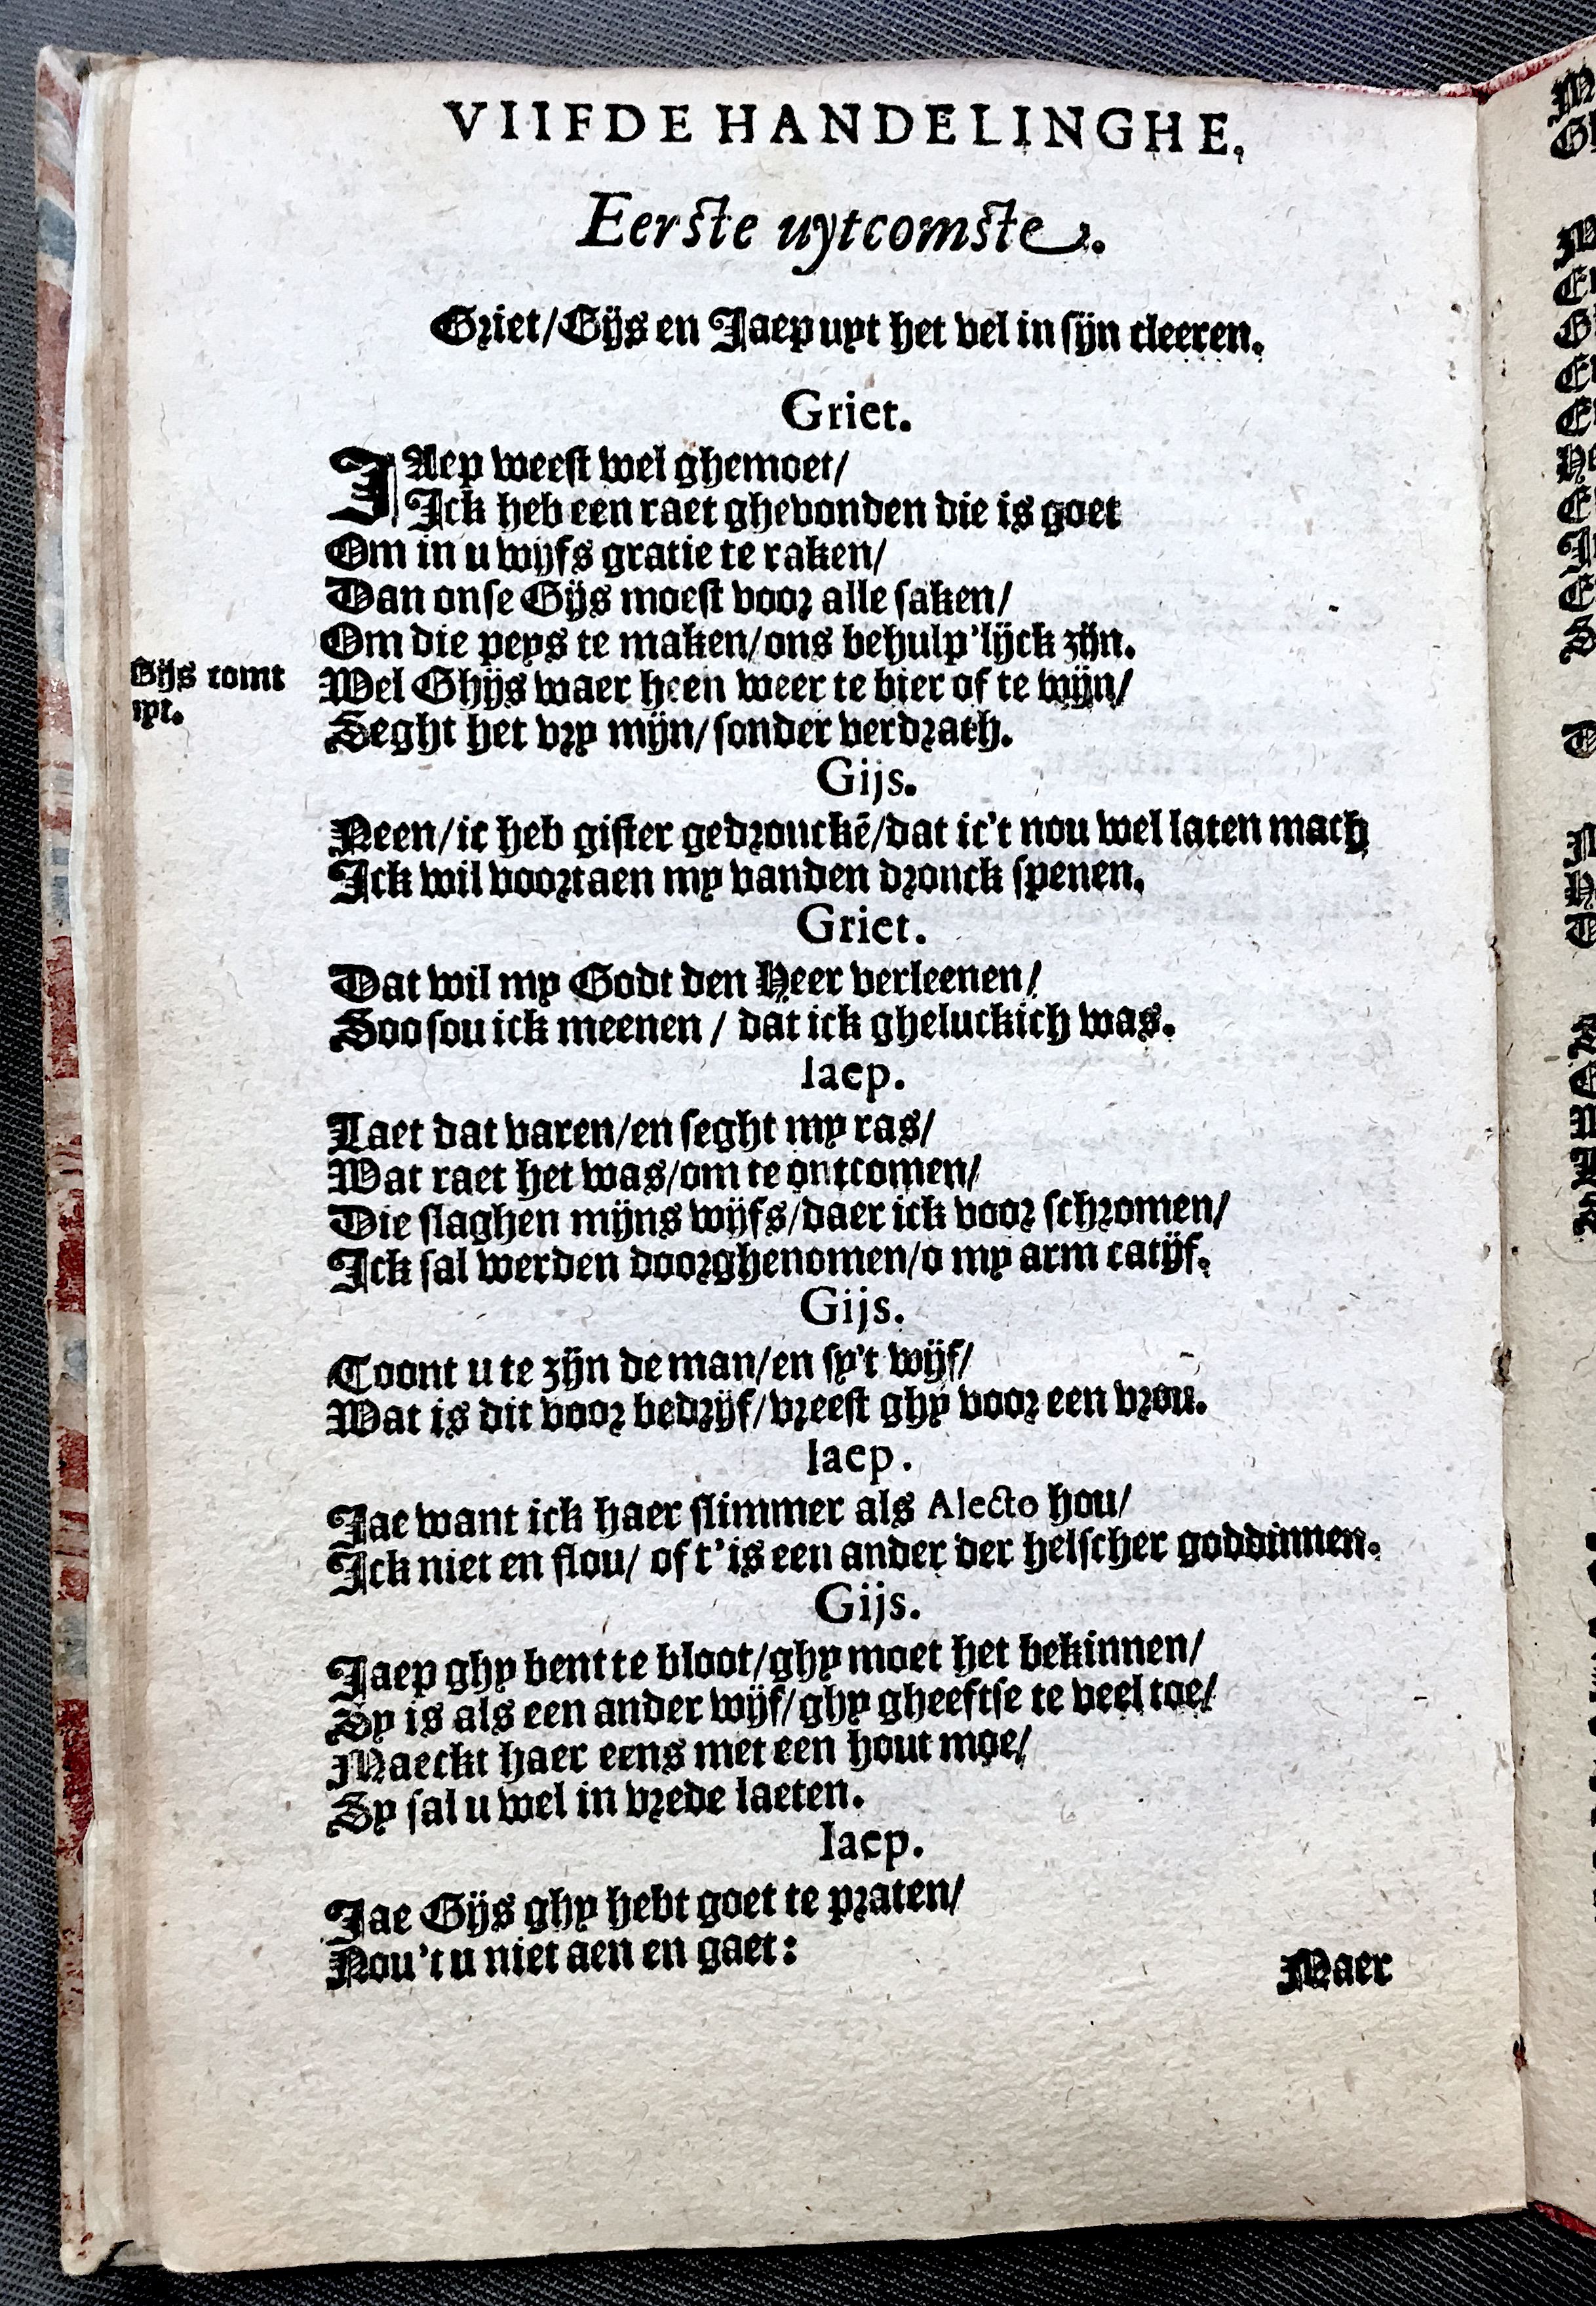 VIIFDE HANDELINGHE,
Eerste uytcomste.
Griet/Gijs en Jaep uyt het vel in sijn cleeren.
Griet.
JAep weest wel ghemoet/
Ick heb een raet ghevonden die is goet
Om in u wijfs gratie te raken/
Dan onse Gijs moest voor alle saken/
Om die peys te maken/ons behulp'lijck zijn.
Gijs comt
uyt.
Wel Ghijs waer heen weer te bier of te wijn/
Seght het vry mijn/sonder verdrach.
Gijs.
Neen/ic heb gister gedronckē/dat ic't nou wel laten mach
Ick wil voortaen my vanden dronck spenen.
Griet.
Dat wil my Godt den Heer verleenen/
Soo sou ick meenen / dat ick gheluckich was.
Iaep.
Laet dat varen/en seght my ras/
Wat raet het was/om te ontcomen/
Die slaghen mijns wijfs/daer ick voor schromen/
Ick sal werden doorghenomen/o my arm catijf.
Gijs.
Toont u te zijn de man/en sy't wijf/
Wat is dit voor bedrijf/vreest ghy voor een vrou.
Iaep.
Jae want ick haer slimmer als Alecto hou/
Ick niet en flou/ of t'is een ander der helscher goddinnen.
Gijs.
Jaep ghy bent te bloot/ghy moet het bekinnen/
Sy is als een ander wijf/ghy gheeftse te veel toe/
Maeckt haer eens met een hout moe/
Sy sal u wel in vrede laeten.
Iaep.
Jae Gijs ghy hebt goet te praten/
Nou't u niet aen en gaet:
Maer